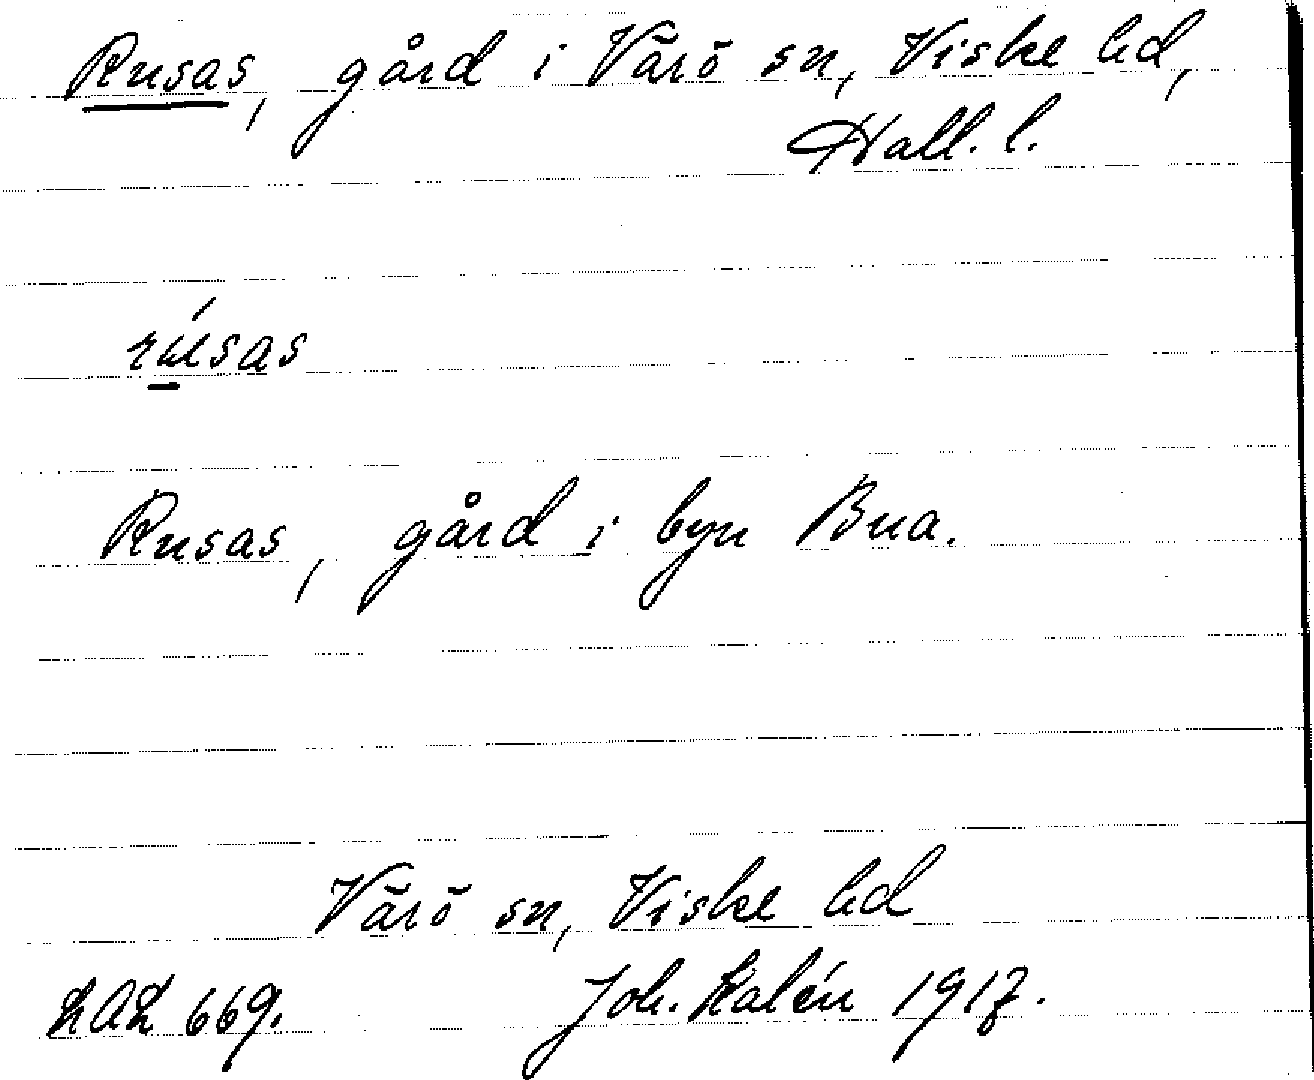 Rusas, gård i Värö sn, Viske hd,
Hall. l.
rúsas
Rusas, gård i byn Bua.
Värö sn, Viske hd
LAL 669. Joh. Kalén 1917.